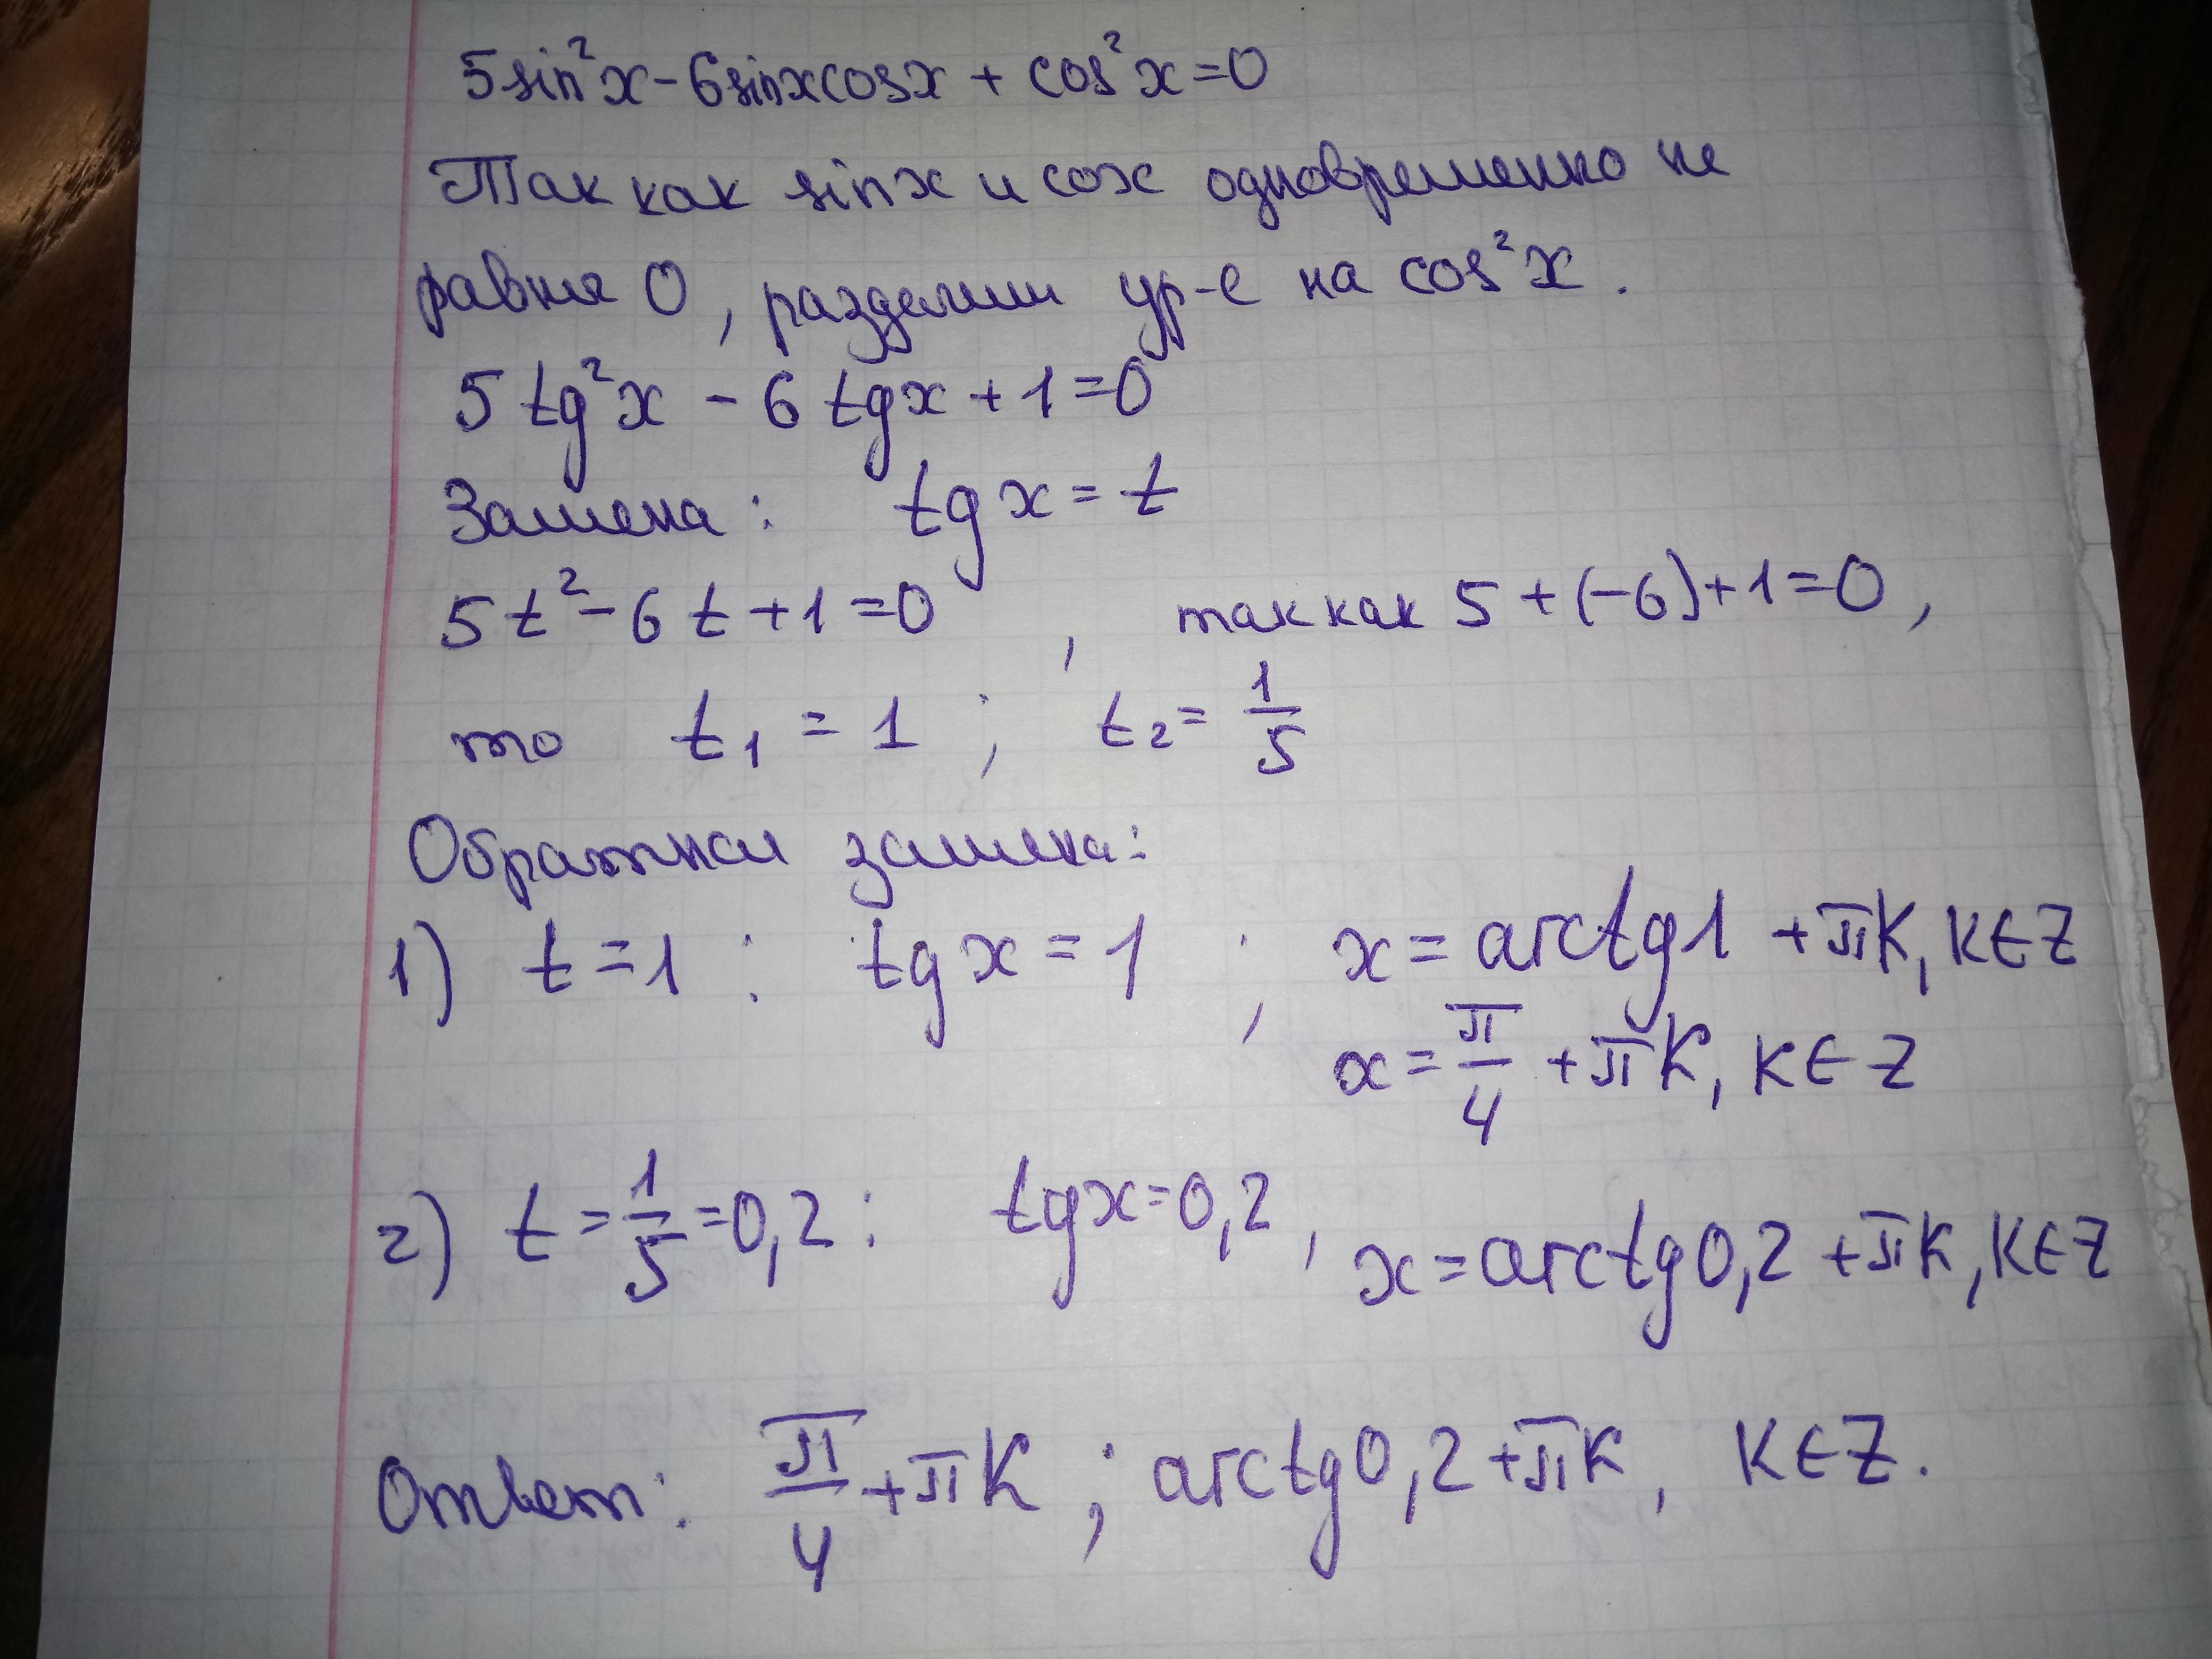 5sin²x - 6sinxcosx + cos²x = 0
Так как sinx и cosx одновременно не
равны 0, разделим ур-е на cos²x.
5tg²x - 6tgx + 1 = 0
Замена: tgx = t
5t² - 6t + 1 = 0, так как 5 + (-6) + 1 = 0,
то t₁ = 1; t₂ = 1/5
Обратная замена:
1) t = 1: tgx = 1; x = arctg1 + πk, k∈Z
x = π/4 + πk, k∈Z
2) t = 1/5 = 0,2: tgx = 0,2, x = arctg0,2 + πk, k∈Z
Ответ: π/4 + πk; arctg0,2 + πk, k∈Z.